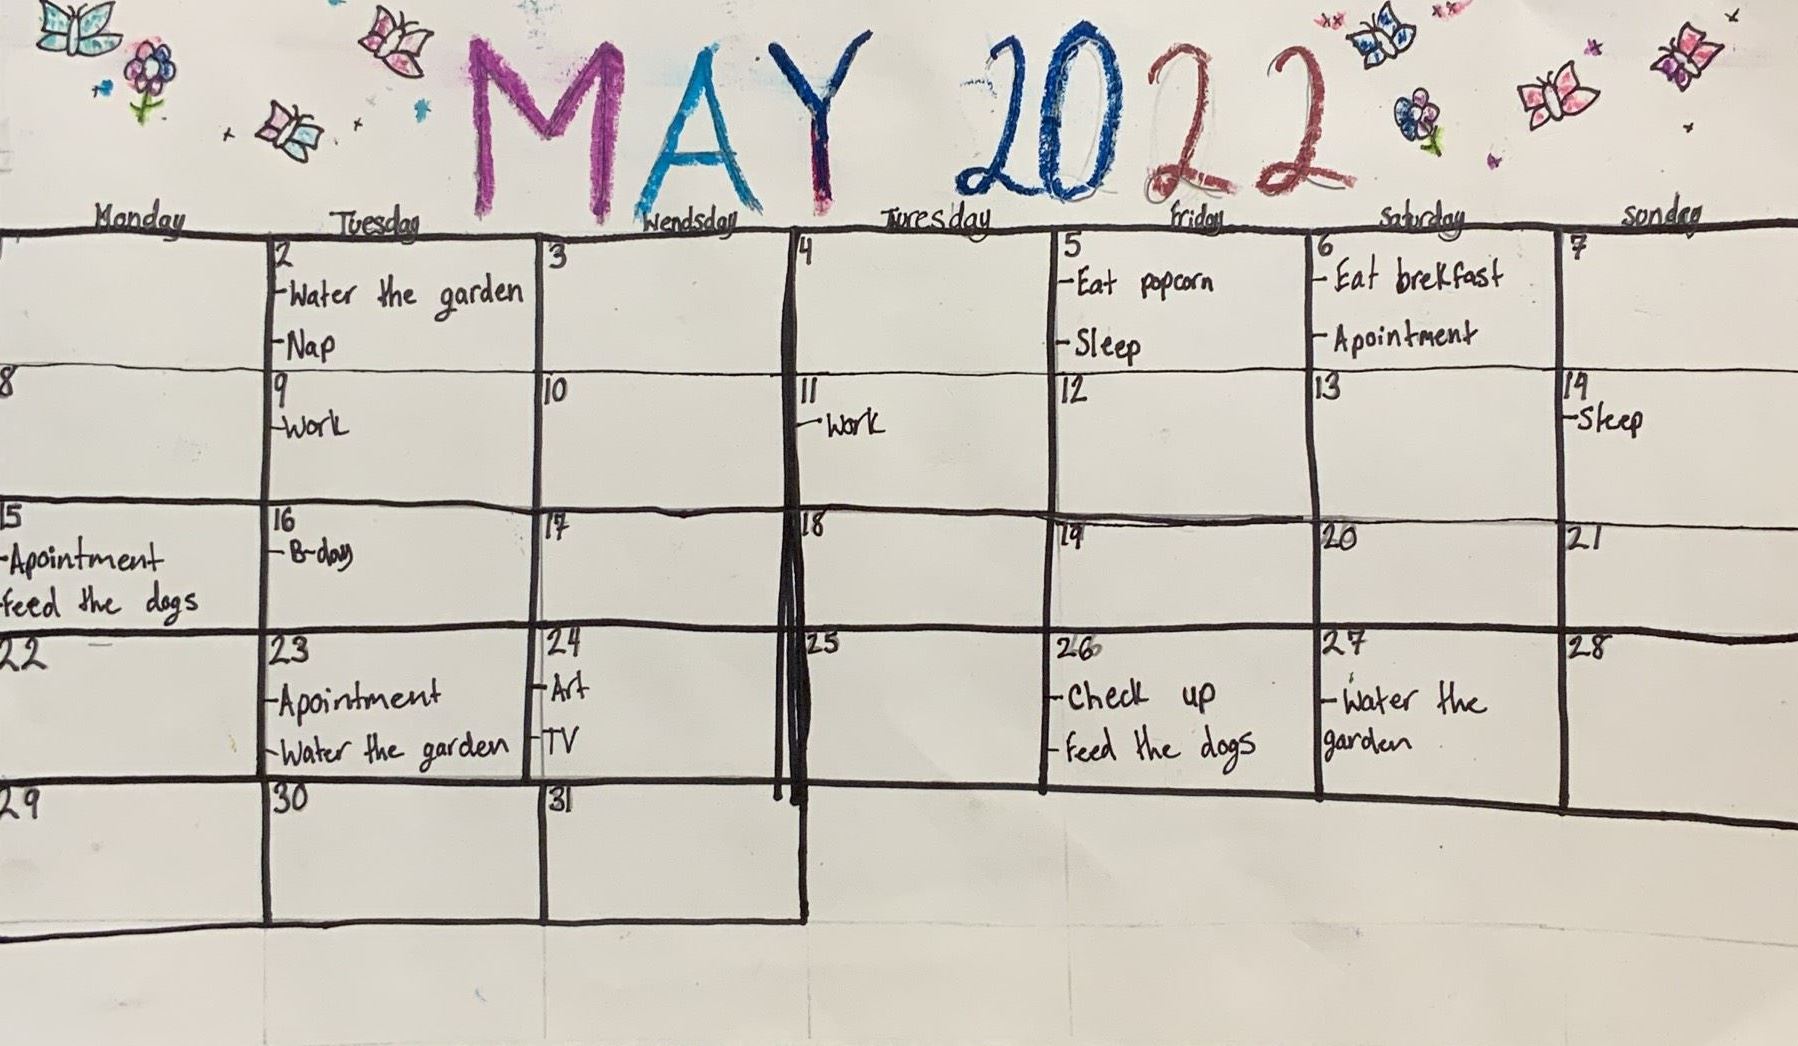 MAY 2022
Monday Tuesday Wendsday Turesday Friday Saturday sonday
2 3 4 5 6 7
-Water the garden
-Nap
-Eat popcorn
-Sleep
-Eat brekfast
-Apointment
8 9 10 11 12 13 14
-Work
-Work
-Sleep
15 16 17 18 19 20 21
-Apointment
feed the dogs
-B-day
22 23 24 25 26 27 28
-Apointment
-Water the garden
-Art
-TV
-Check up
-feed the dogs
-Water the
garden
29 30 31